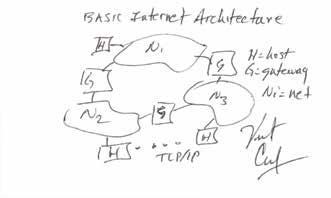 BASIC Internet Architecture
H
N1
G
G
H=host
G=gateway
Ni=net
N2
G
N3
H
H
TCP/IP
Vint
Cerf